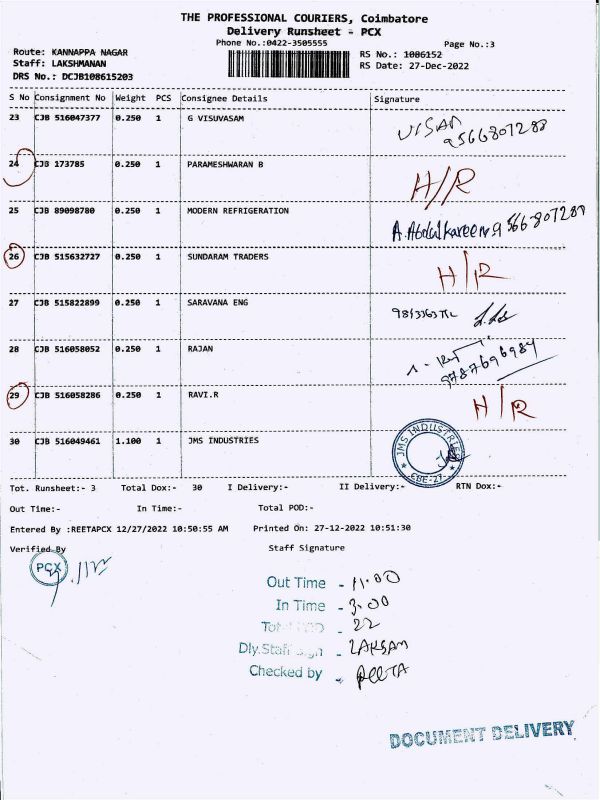 THE PROFESSIONAL COURIERS, Coimbatore
Delivery Runsheet - PCX
Phone No.:0422-3505555
Page No.:3
Route: KANNAPPA NAGAR
RS No.: 1086152
Staff: LAKSHMANAN
RS Date: 27-Dec-2022
DRS No.: DCJB108615203
S No Consignment No Weight PCS Consignee Details Signature
23 CJB 516047377 0.250 1 G VISUVASAM VISAM 9566807288
24 CJB 173785 0.250 1 PARAMESHWARAN B H/R
25 CJB 89098780 0.250 1 MODERN REFRIGERATION A. Abdul kareem 9566807280
26 CJB 515632727 0.250 1 SUNDARAM TRADERS H/R
27 CJB 515822899 0.250 1 SARAVANA ENG
28 CJB 516058052 0.250 1 RAJAN 9787696984
29 CJB 516058286 0.250 1 RAVI.R H/R
30 CJB 516049461 1.100 1 JMS INDUSTRIES JMS INDUSTRIES CBE-27
Tot. Runsheet:- 3 Total Dox:- 30 I Delivery:- II Delivery:- RTN Dox:-
Out Time:- In Time:- Total POD:-
Entered By :REETAPCX 12/27/2022 10:50:55 AM Printed On: 27-12-2022 10:51:30
Verified By Staff Signature
PCX
Out Time - 11.00
In Time - 3.00
Total POD - 22
Dly.Staff Sign - LAKSAM
Checked by - REETA
DOCUMENT DELIVERY